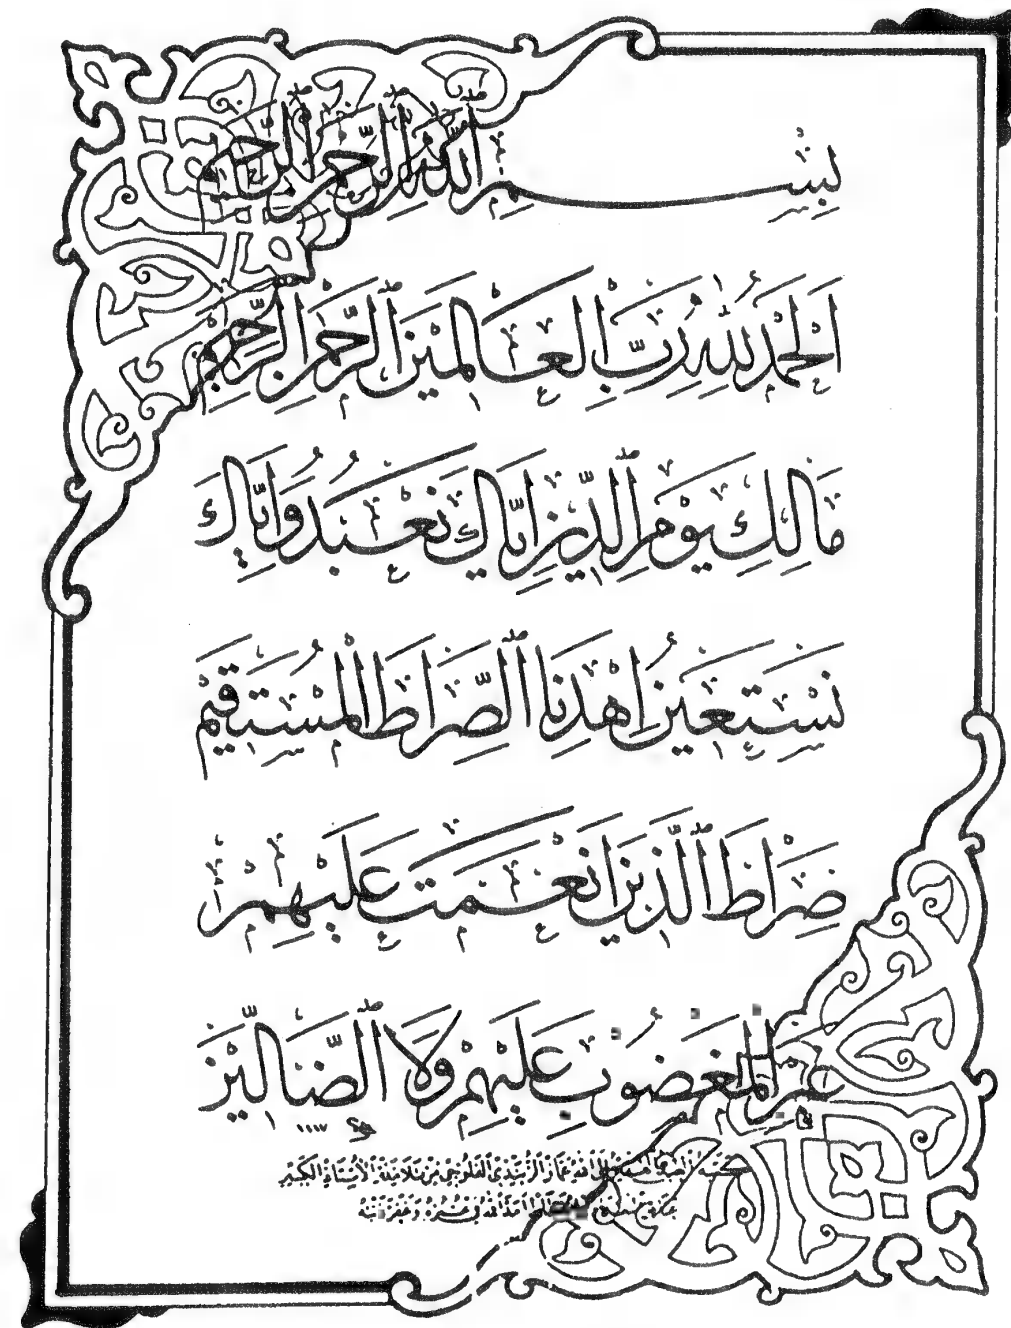 بسم الله الرحمن الرحيم
الحمد لله رب العالمين الرحمن الرحيم
مالك يوم الدين إياك نعبد وإياك
نستعين اهدنا الصراط المستقيم
صراط الذين أنعمت عليهم
غير المغضوب عليهم ولا الضالين
الزبيدي الفلوجي من تلامذة الأستاذ الكبير